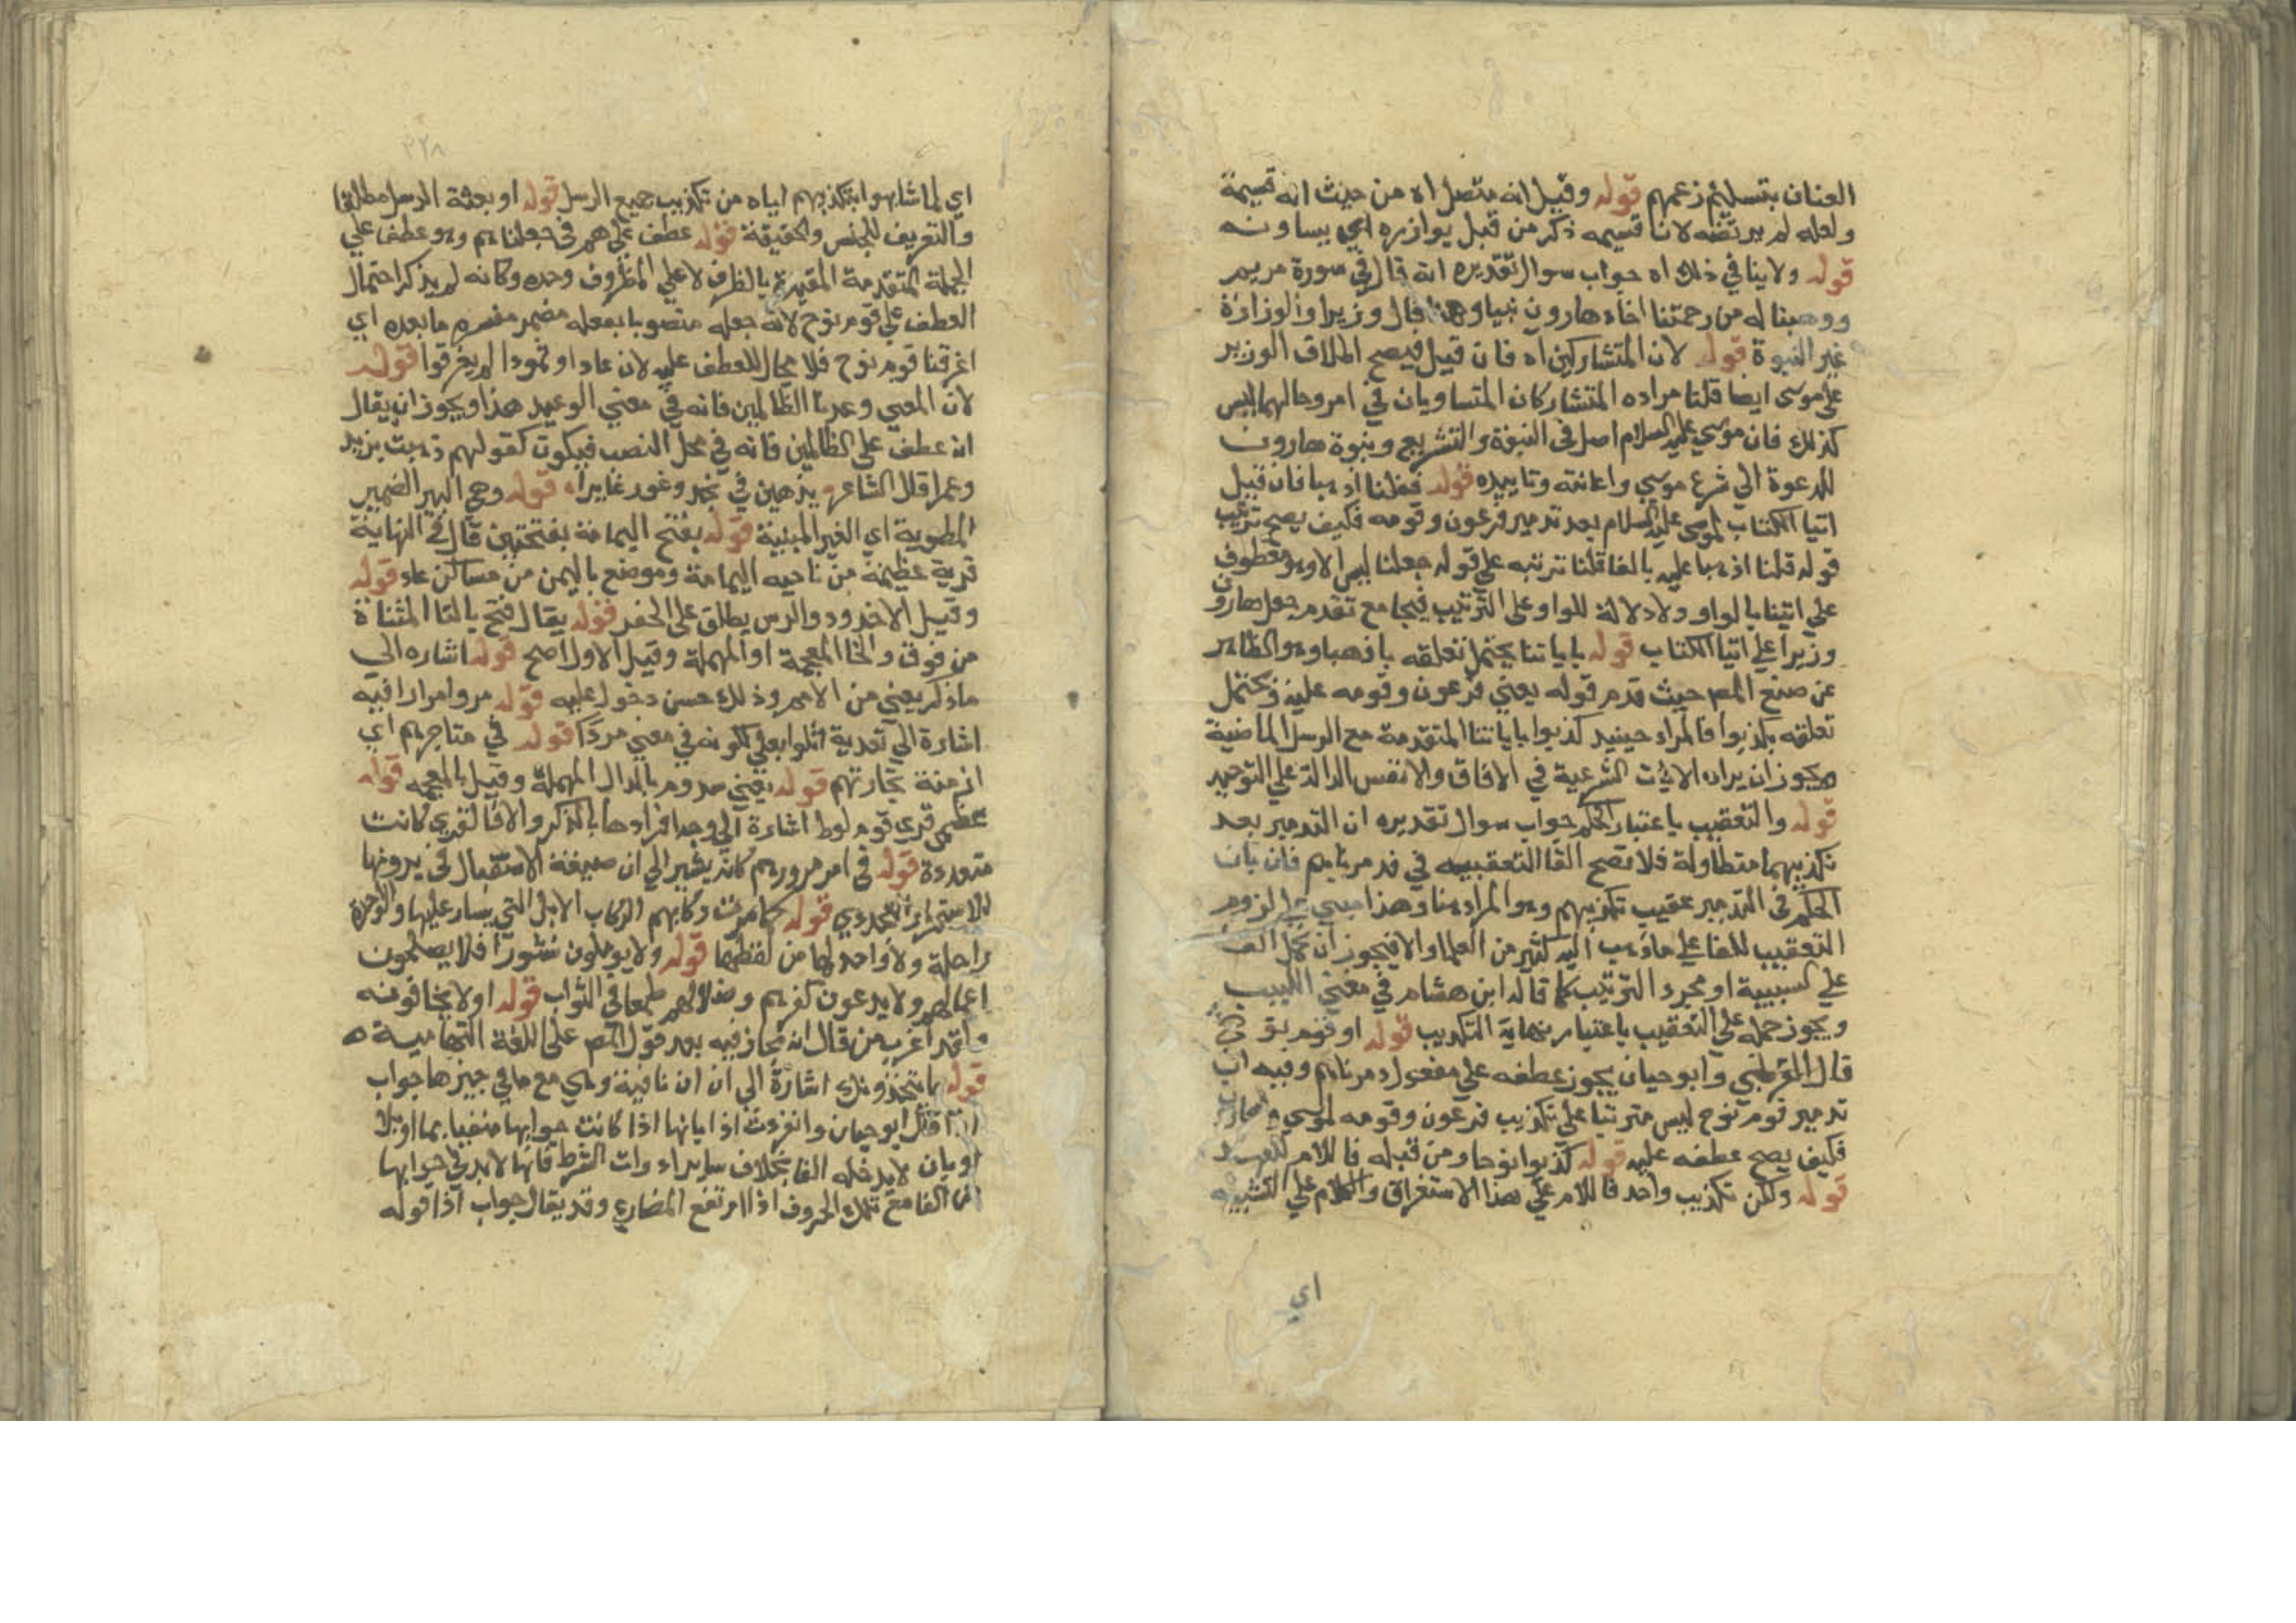 العنان بتسليم زعمهم قوله وقيل انه متصل اه من حيث انه قسيمة
ولعله لم يرتضه لان قسيمه ذكر من قبل يوازيره اي يساونه
قوله ولاينافي ذلك اه جواب سوال تقديره انه قال في سورة مريم
ووهبنا له من رحمتنا اخاه هارون نبيا وهنا قال وزيرا والوزارة
غير النبوة قوله لان المتشاركين اه فان قيل فيصح اطلاق الوزير
علي موسى ايضا قلنا مراده المتشاركان المتساويان في امر وحالهما ليس
كذلك فان موسي عليه السلام اصل في النبوة والتشريع ونبوة هارون
للدعوة الي شرع موسي واعانته وتاييده قوله فقلنا اذهبا فان قيل
اتيا الكتاب لموسى عليه السلام بعد تدمير فرعون وقومه فكيف يصح ترتيب
قوله قلنا اذهبا عليه بالفا قلنا ترتبه علي قوله جعلنا ليس الا وهو معطوف
علي اتينا بالواو ولا دلالة للواو على الترتيب فيجامع تقدم جعل هارون
وزيرا علي اتيا الكتاب قوله باياتنا يحتمل تعلقه باذهبا وهو الظاهر
عن صنع المص حيث قدم قوله يعني فرعون وقومه عليه ويحتمل
تعلقه بكذبوا فالمراد حينيد كذبوا باياتنا المتقدمة مع الرسل الماضية
ويجوز ان يراد الايات الشرعية في الافاق والانفس الدالة علي التوحيد
قوله والتعقيب باعتبار الحكم جواب سوال تقديره ان التدمير بعد
تكذيبهما متطاولة فلا تصح الفا التعقيبيه في فدمرناهم فان بان
الحكم في التدمير عقيب تكذيبهم وهو المراد هنا وهذا مبني علي لزوم
التعقيب للفا علي ماذهب اليه كثير من العلما والا فيجوز ان تحمل الفا
علي السببية او مجرد الترتيب كما قاله ابن هشام في مغني اللبيب
ويجوز حمله علي التعقيب باعتبار نهاية التكذيب قوله او قوم نوح
قال القرطبي وابو حيان يجوز عطفه علي مفعول دمرناهم وفيه ان
تدمير قوم نوح ليس مترتبا علي تكذيب فرعون وقومه لموسي وهارون
فكيف يصح عطفه عليه قوله كذبوا نوحا ومن قبله فاللام للعهد
قوله ولكن تكذيب واحد فاللام علي هذا الاستغراق والكلام علي التشبيه
اي
٣٢٨
اي لما شابهوا بتكذيبهم اياه من تكذيب جميع الرسل قوله او بعثة الرسل مطلقا
والتعريف للجنس والحقيقة قوله عطف علي هم في جعلناهم وهو عطف علي
الجملة المتقدمة المقيدة بالظرف لا علي المظروف وحده وكانه لم يذكر احتمال
العطف علي قوم نوح لانه جعله منصوبا بفعله مضمر مفسره مابعده اي
اغرقنا قوم نوح فلا مجال للعطف عليه لان عادا وثمودا لم يغرقوا قوله
لان المعني وعدنا الظالمين فانه في معني الوعيد هذا ويجوز ان يقال
انه عطف على الظالمين فانه في محل النصب فيكون كقولهم ذهبت بزيد
وعمرا قال الشاعر يذهبن في نجد وغور غايرا قوله وهي البير الضمير
المطوية اي الغير المبنية قوله بفتح اليمامة بفتحتين قال في النهاية
قرية عظيمة من ناحيه اليمامة وموضع باليمن من مساكن عاد قوله
وقيل الاخدود والرس يطلق على الحفر قوله يقال فتح بالتا المثناة
من فوق والخا المعجمة او المهملة وقيل الاول اصح قوله اشاره الي
ماذكر يعني من الامم وذلك حسن دخول عليه قوله مروا مرارا فيه
اشارة الي تعدية اتوا بعلي لكونه في معني مر قوله في متاجرهم اي
ازمنة تجارتهم قوله يعني سدوم بالدال المهملة وقيل بالمعجمه قوله
عظمي قري قوم لوط اشارة الي وجه افرادها بالذكر والا فالقري كانت
متعددة قوله في امر مرورهم كانه يشير الي ان صيغة الاستقبال في يرونها
للاستمرار التجددي قوله كما مرت ركابهم الركاب الابل التي يسار عليها والواحدة
راحلة ولا واحد لها من لفظها قوله ولا يوملون نشورا فلا يصلحون
اعمالهم ولا يدعون كفرهم وضلالهم طمعا في الثواب قوله او لا يخافونه
ولقد اغرب من قال انه مجاز فيه بعد قول المص على اللغة التهامية ه
قوله ما يتخذونك اشارة الي ان ان نافية وهي مع ما في حيزها جواب
اذا قال ابو حيان وانفردت اذا بانها اذا كانت جوابها منفيا بما او بلا
او بان لا يدخله الفا بخلاف ساير ادوات الشرط فانها لابد في جوابها
من الفا مع تلك الحروف اذا ارتفع المضارع وقد يقال جواب اذا قوله